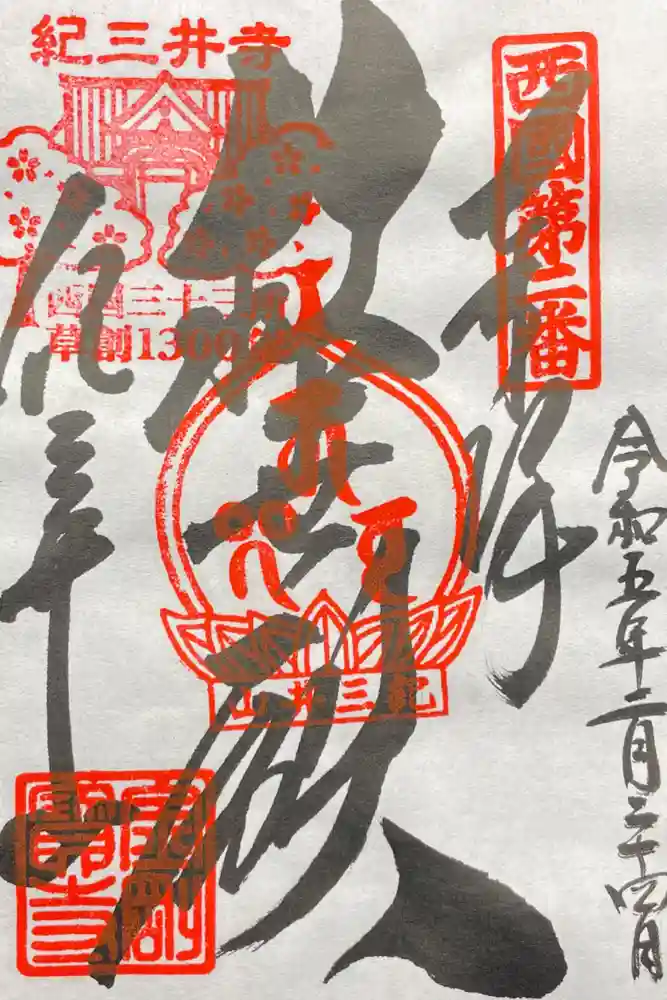 西国第二番
奉拝
令和五年二月二十四日
救世殿
紀三井寺
西国三十三所
草創1300年
紀三井山
紀三井寺
金剛
寶寺